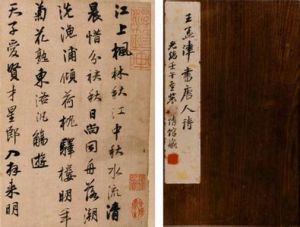 王孟津書唐人詩
光緒壬午重裝
江上楓林秋江中秋水流清
晨惜分袂秋日尚同舟落潮
洗漁浦傾荷枕驛樓明年
菊花熟東洛汎觴遊
天子愛賢才星郎入拜來明